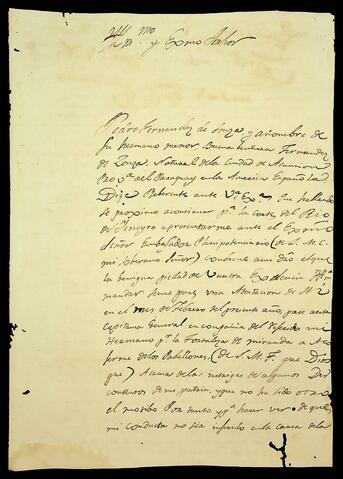 Illmo y Exmo Señor
Pedro Fernandez de Souza y a nombre de
su hermano menor Buena Ventura Fernandez
de Souza, Natural de la Ciudad de Asuncion
Prova del Paraguay en la America Española
Dize Reberente ante Va Exa Que hallando
se proximo a continuar pa la Corte del Rio
apresentarme ante el Exmo
Señor Embajador Plenipotenciario (de S. M. C.
mi Soberano Señor) con
la benigna piedad de Vuestra Excelencia
mandar seme pase una Atestacion de
en el mes de Febrero del presente año, pase a esta
Capitania General en compañia del Referido mi
Hermano pa la Fortaleza de Miranda a Aco
jerme de los Pabellones, (de S. M. F. que Dios
gue) Acerca de la intriga de algunos Des
contentos de mi patria, y que no ha sido otro
el motibo Por tanto y pa hacer ver de que
mi conducta no sea en la causa de la